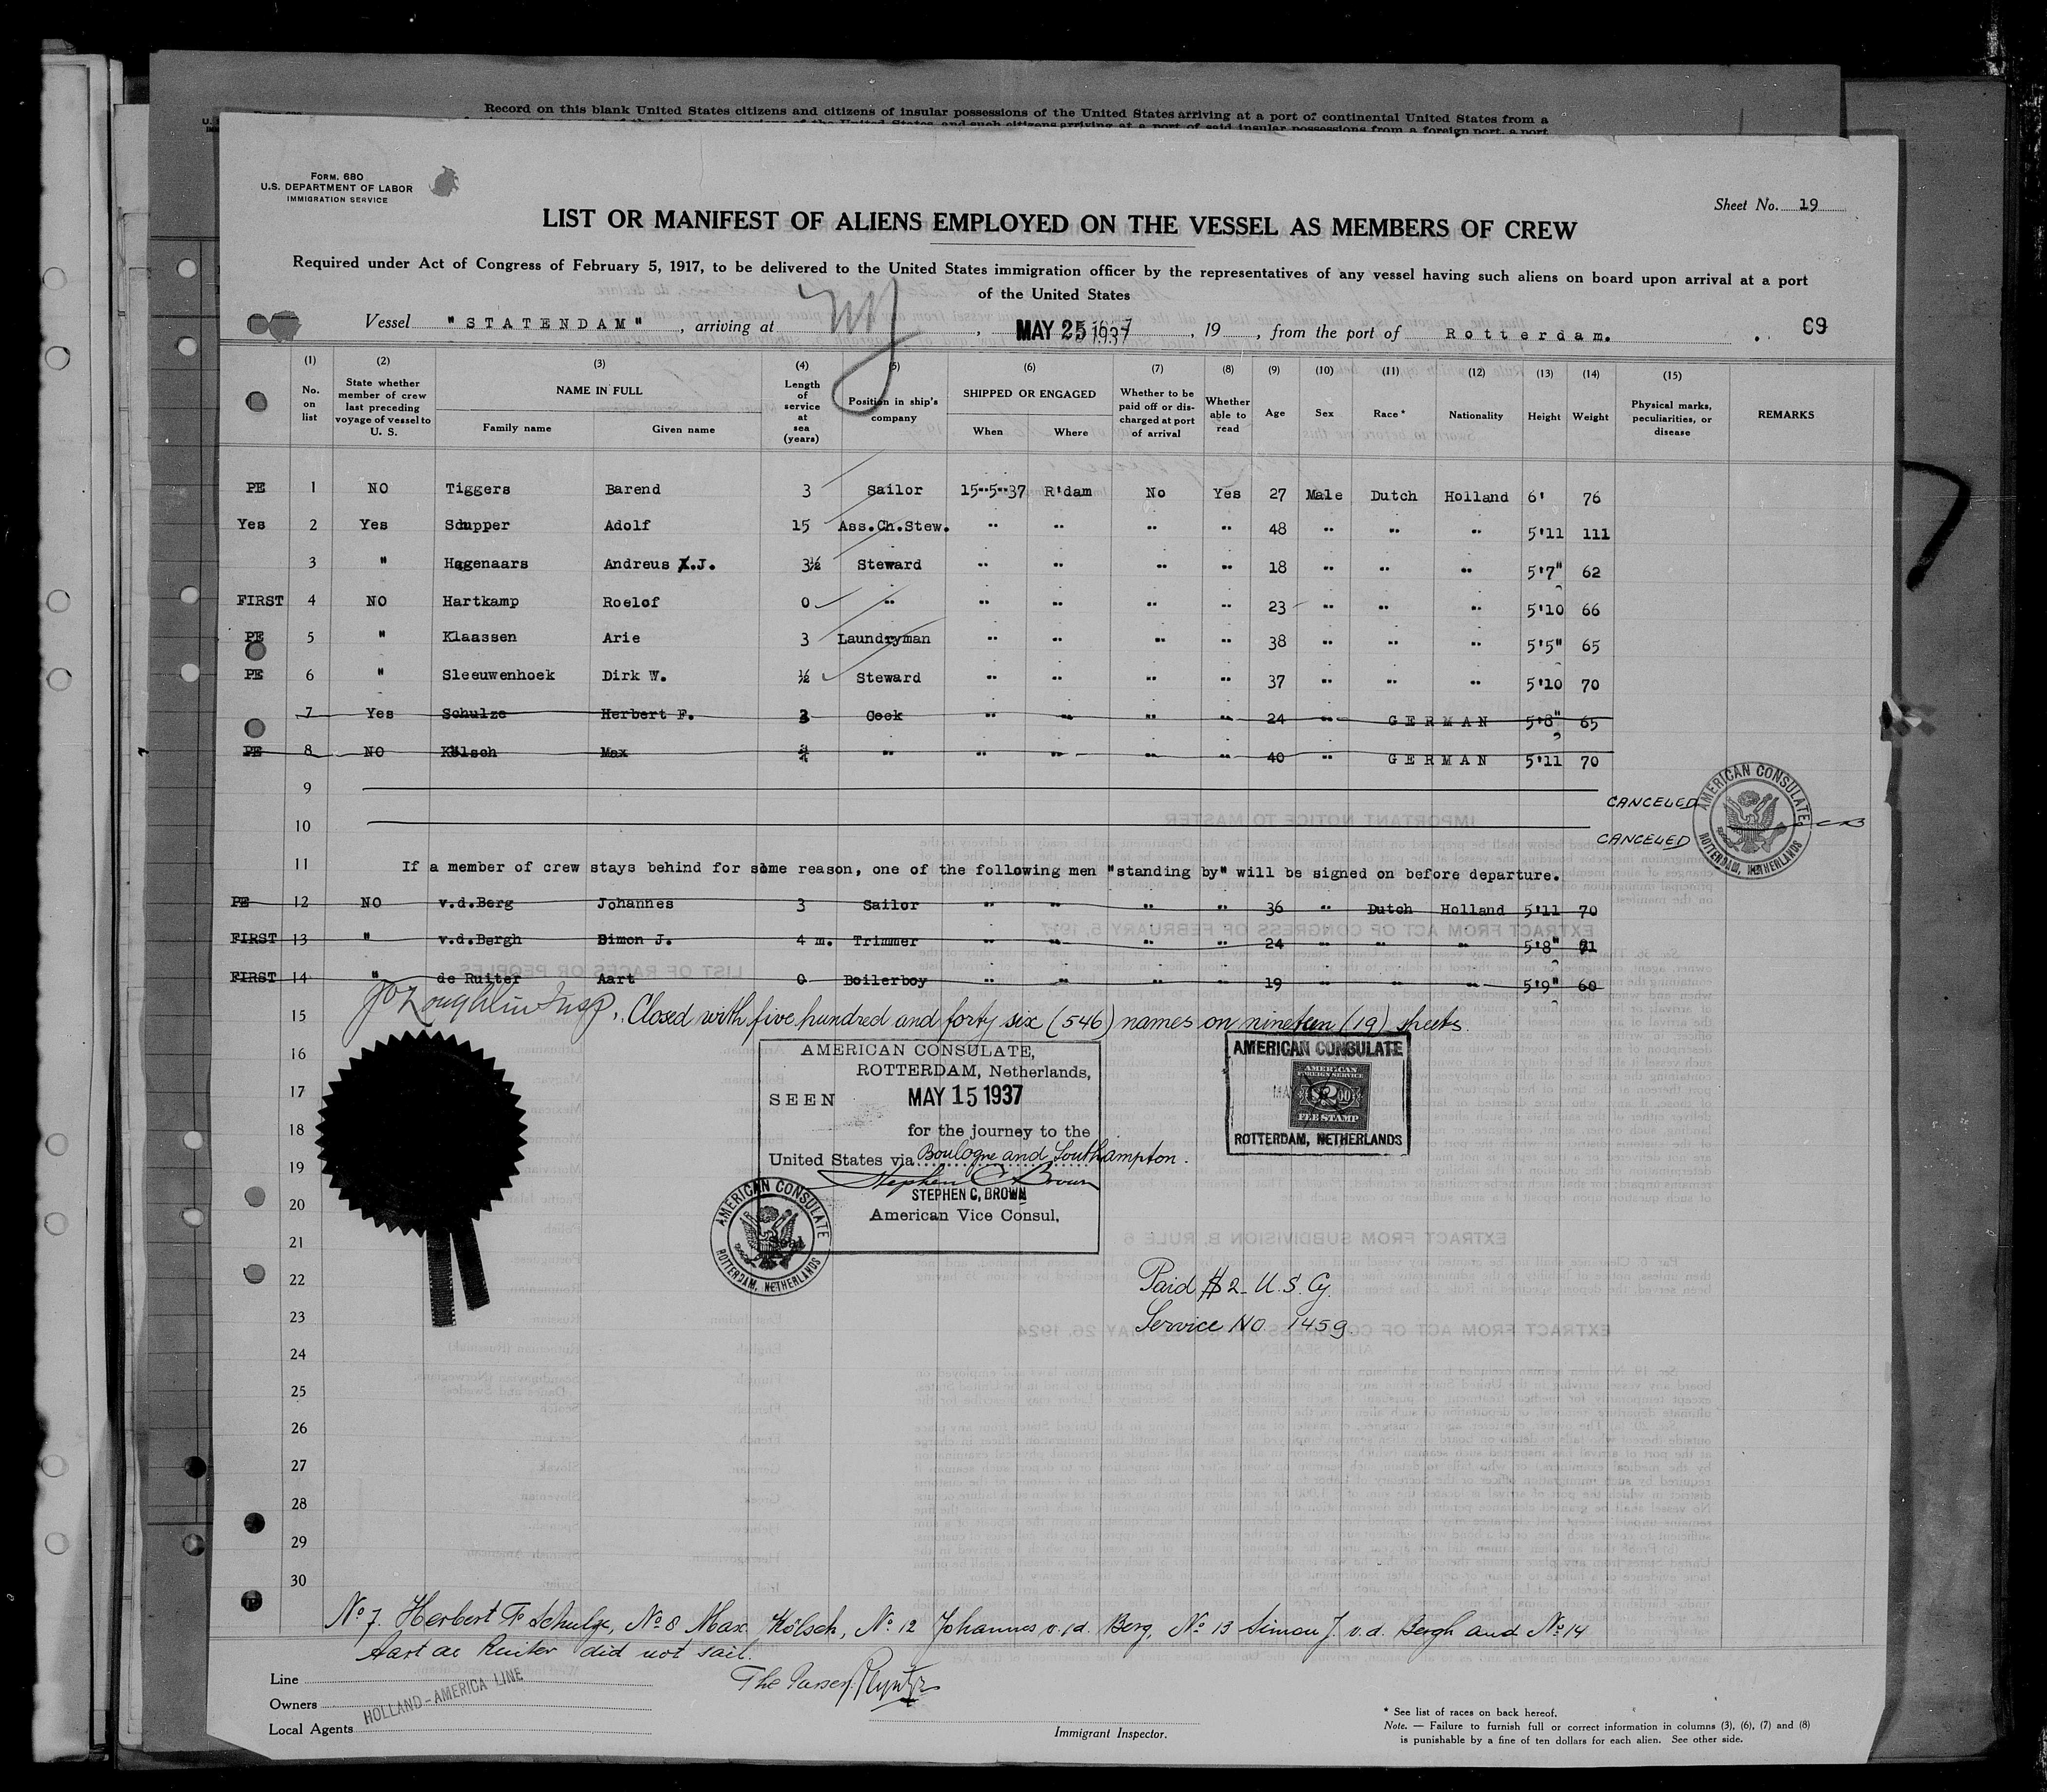 Record on this blank United States citizens and citizens of insular possessions of the United States arriving at a port of continental United States from a
FORM. 680
U.S. DEPARTMENT OF LABOR
IMMIGRATION SERVICE
Sheet No. 19
LIST OR MANIFEST OF ALIENS EMPLOYED ON THE VESSEL AS MEMBERS OF CREW
Required under Act of Congress of February 5, 1917, to be delivered to the United States immigration officer by the representatives of any vessel having such aliens on board upon arrival at a port
of the United States
Vessel "STATENDAM", arriving at NY, MAY 25 1937, 19, from the port of Rotterdam. 69
(1) (2) (3) (4) (5) (6) (7) (8) (9) (10) (11) (12) (13) (14) (15)
No. on list State whether member of crew last preceding voyage of vessel to U. S. NAME IN FULL Family name Given name Length of service at sea (years) Position in ship's company SHIPPED OR ENGAGED When Where Whether to be paid off or discharged at port of arrival Whether able to read Age Sex Race* Nationality Height Weight Physical marks, peculiarities, or disease REMARKS
PE 1 NO Tiggers Barend 3 Sailor 15-5-37 R'dam No Yes 27 Male Dutch Holland 6' 76
Yes 2 Yes Schupper Adolf 15 Ass.Ch.Stew. " " " " 48 " " " 5'11 111
3 " Hagenaars Andreus X.J. 3½ Steward " " " " 18 " " " 5'7" 62
FIRST 4 NO Hartkamp Roelof 0 " " " " " 23 " " " 5'10 66
PE 5 " Klaassen Arie 3 Laundryman " " " " 38 " " " 5'5" 65
PE 6 " Sleeuwenhoek Dirk W. ½ Steward " " " " 37 " " " 5'10 70
7 Yes Schulze Herbert F. 3 Cook " " " " 24 " GERMAN 5'8" 65
PE 8 NO Kölsch Max " " " " " 40 " GERMAN 5'11 70
9 CANCELED
10 CANCELED
AMERICAN CONSULATE, ROTTERDAM, NETHERLANDS
11 If a member of crew stays behind for some reason, one of the following men "standing by" will be signed on before departure.
PE 12 NO v.d.Berg Johannes 3 Sailor " " " " 36 " Dutch Holland 5'11 70
FIRST 13 " v.d.Bergh Simon J. 4 m. Trimmer " " " " 24 " " " 5'8"
FIRST 14 " de Ruiter Aart 0 Boilerboy " " " " 19 " " " 5'9" 60
15 Closed with five hundred and forty six (546) names on nineteen (19) sheets.
16
17
18
19
20
21
22
23
24
25
26
27
28
29
30
AMERICAN CONSULATE,
ROTTERDAM, Netherlands,
SEEN MAY 15 1937
for the journey to the
United States via Boulogne and Southampton.
Stephen C Brown
STEPHEN C. BROWN
American Vice Consul.
AMERICAN CONSULATE
Seal
ROTTERDAM, NETHERLANDS
AMERICAN CONSULATE
AMERICAN
FOREIGN SERVICE
$2.00
FEE STAMP
ROTTERDAM, NETHERLANDS
Paid $2. U.S. Cy.
Service No. 1459.
No 7. Herbert F. Schulze, No 8 Max Kölsch, No 12 Johannes v.d. Berg, No 13 Simon J. v.d. Bergh and No 14
Aart de Ruiter did not sail.
The Purser
Line
Owners HOLLAND-AMERICA LINE
Local Agents
Immigrant Inspector.
* See list of races on back hereof.
Note. — Failure to furnish full or correct information in columns (3), (6), (7) and (8)
is punishable by a fine of ten dollars for each alien. See other side.